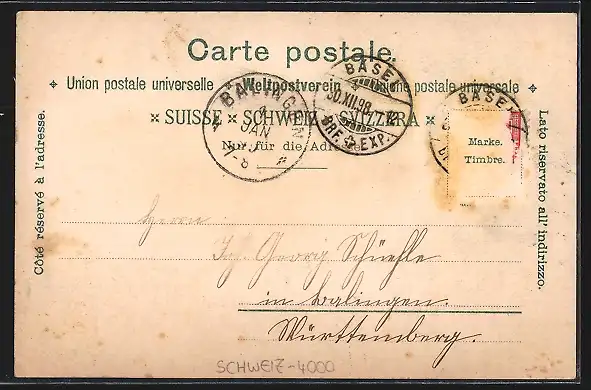 Carte postale.
Union postale universelle Weltpostverein Unione postale universale
SUISSE × SCHWEIZ × SVIZZERA
Nur für die Adresse.
Marke.
Timbre.
Côté réservé à l'adresse.
Lato riservato all' indirizzo.
BALINGEN
JAN
7-8
BASEL
30.XII.98.
BRF. EXP.
BASEL
Herrn
Georg
in Balingen.
Württemberg.
SCHWEIZ-4000